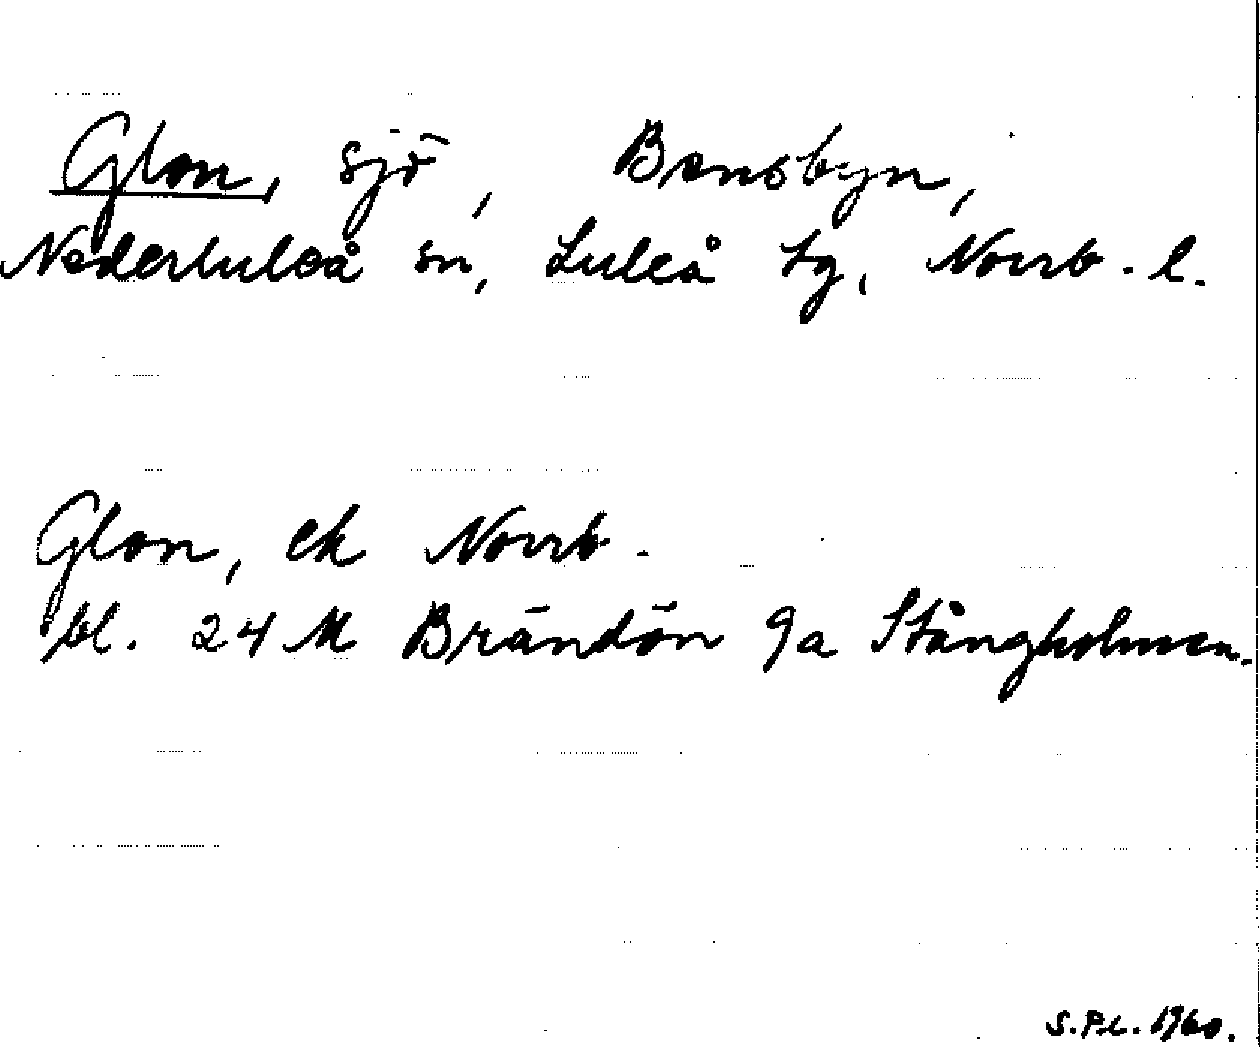 Glon, sjö, Bensbyn,
Nederluleå sn, Luleå tg, Norrb. l.
Glon, ek Norrb.
bl. 24 M Brändön 9a Stångholmen.
S.P.L. 1960.